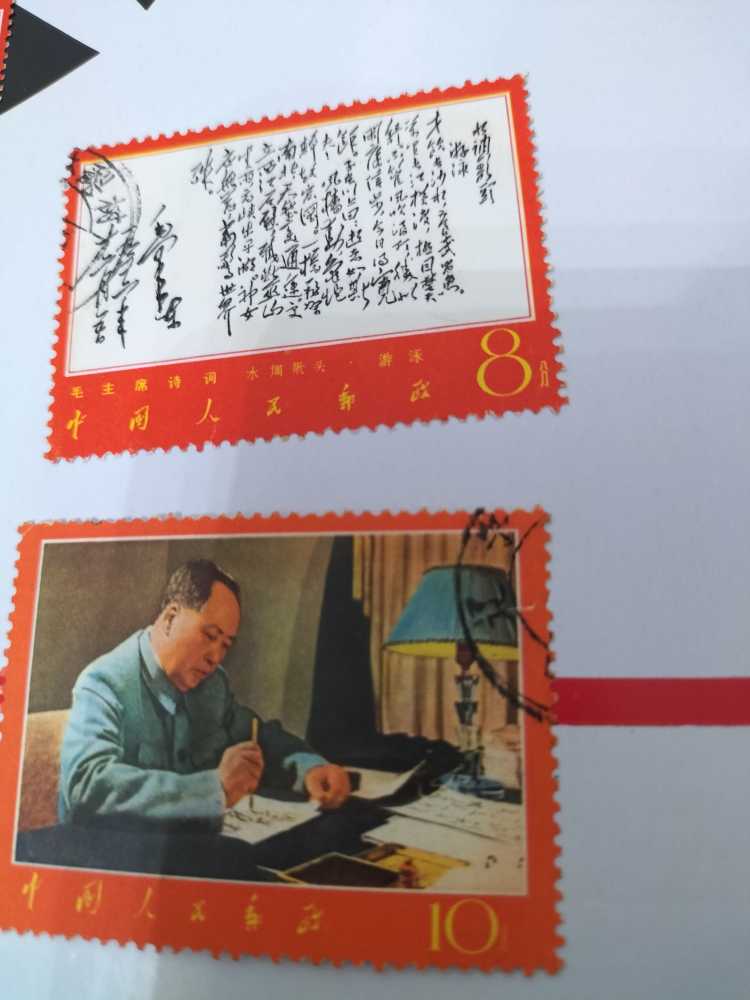 水调歌头
游泳
才饮长沙水，又食武昌鱼。
万里长江横渡，极目楚天
舒。不管风吹浪打，胜似
闲庭信步，今日得宽
馀。子在川上曰：逝者如斯
夫！风樯动，龟蛇
静，起宏图。一桥飞架
南北，天堑变通途。更
立西江石壁，截断巫山
云雨，高峡出平湖。神女
应无恙，当惊世界
殊。
毛泽东
毛主席诗词 水调歌头·游泳
8分
中国人民邮政
中国人民邮政
10